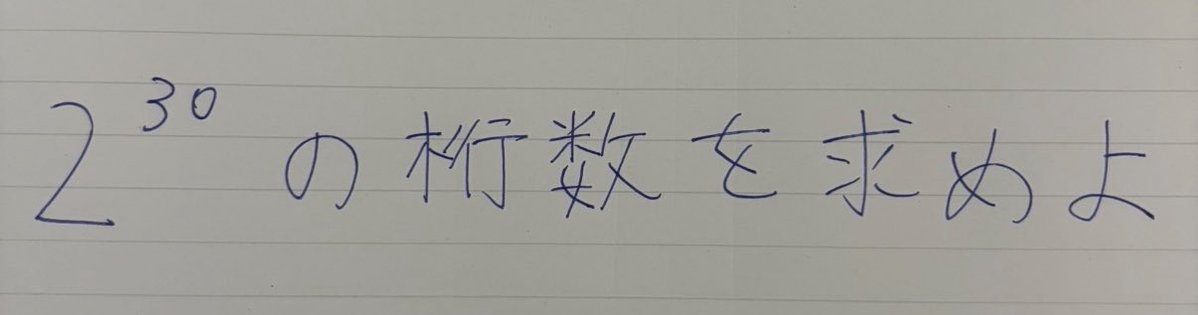 2³⁰の桁数を求めよ